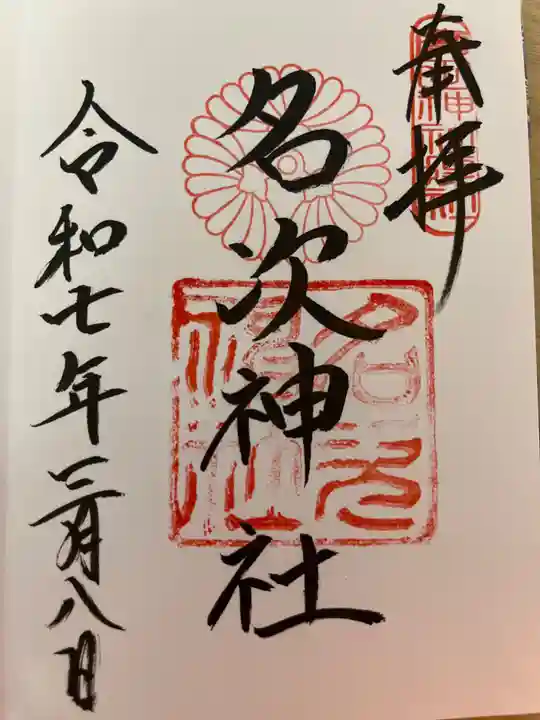 奉拝
名次神社
令和七年二月八日
名次神社